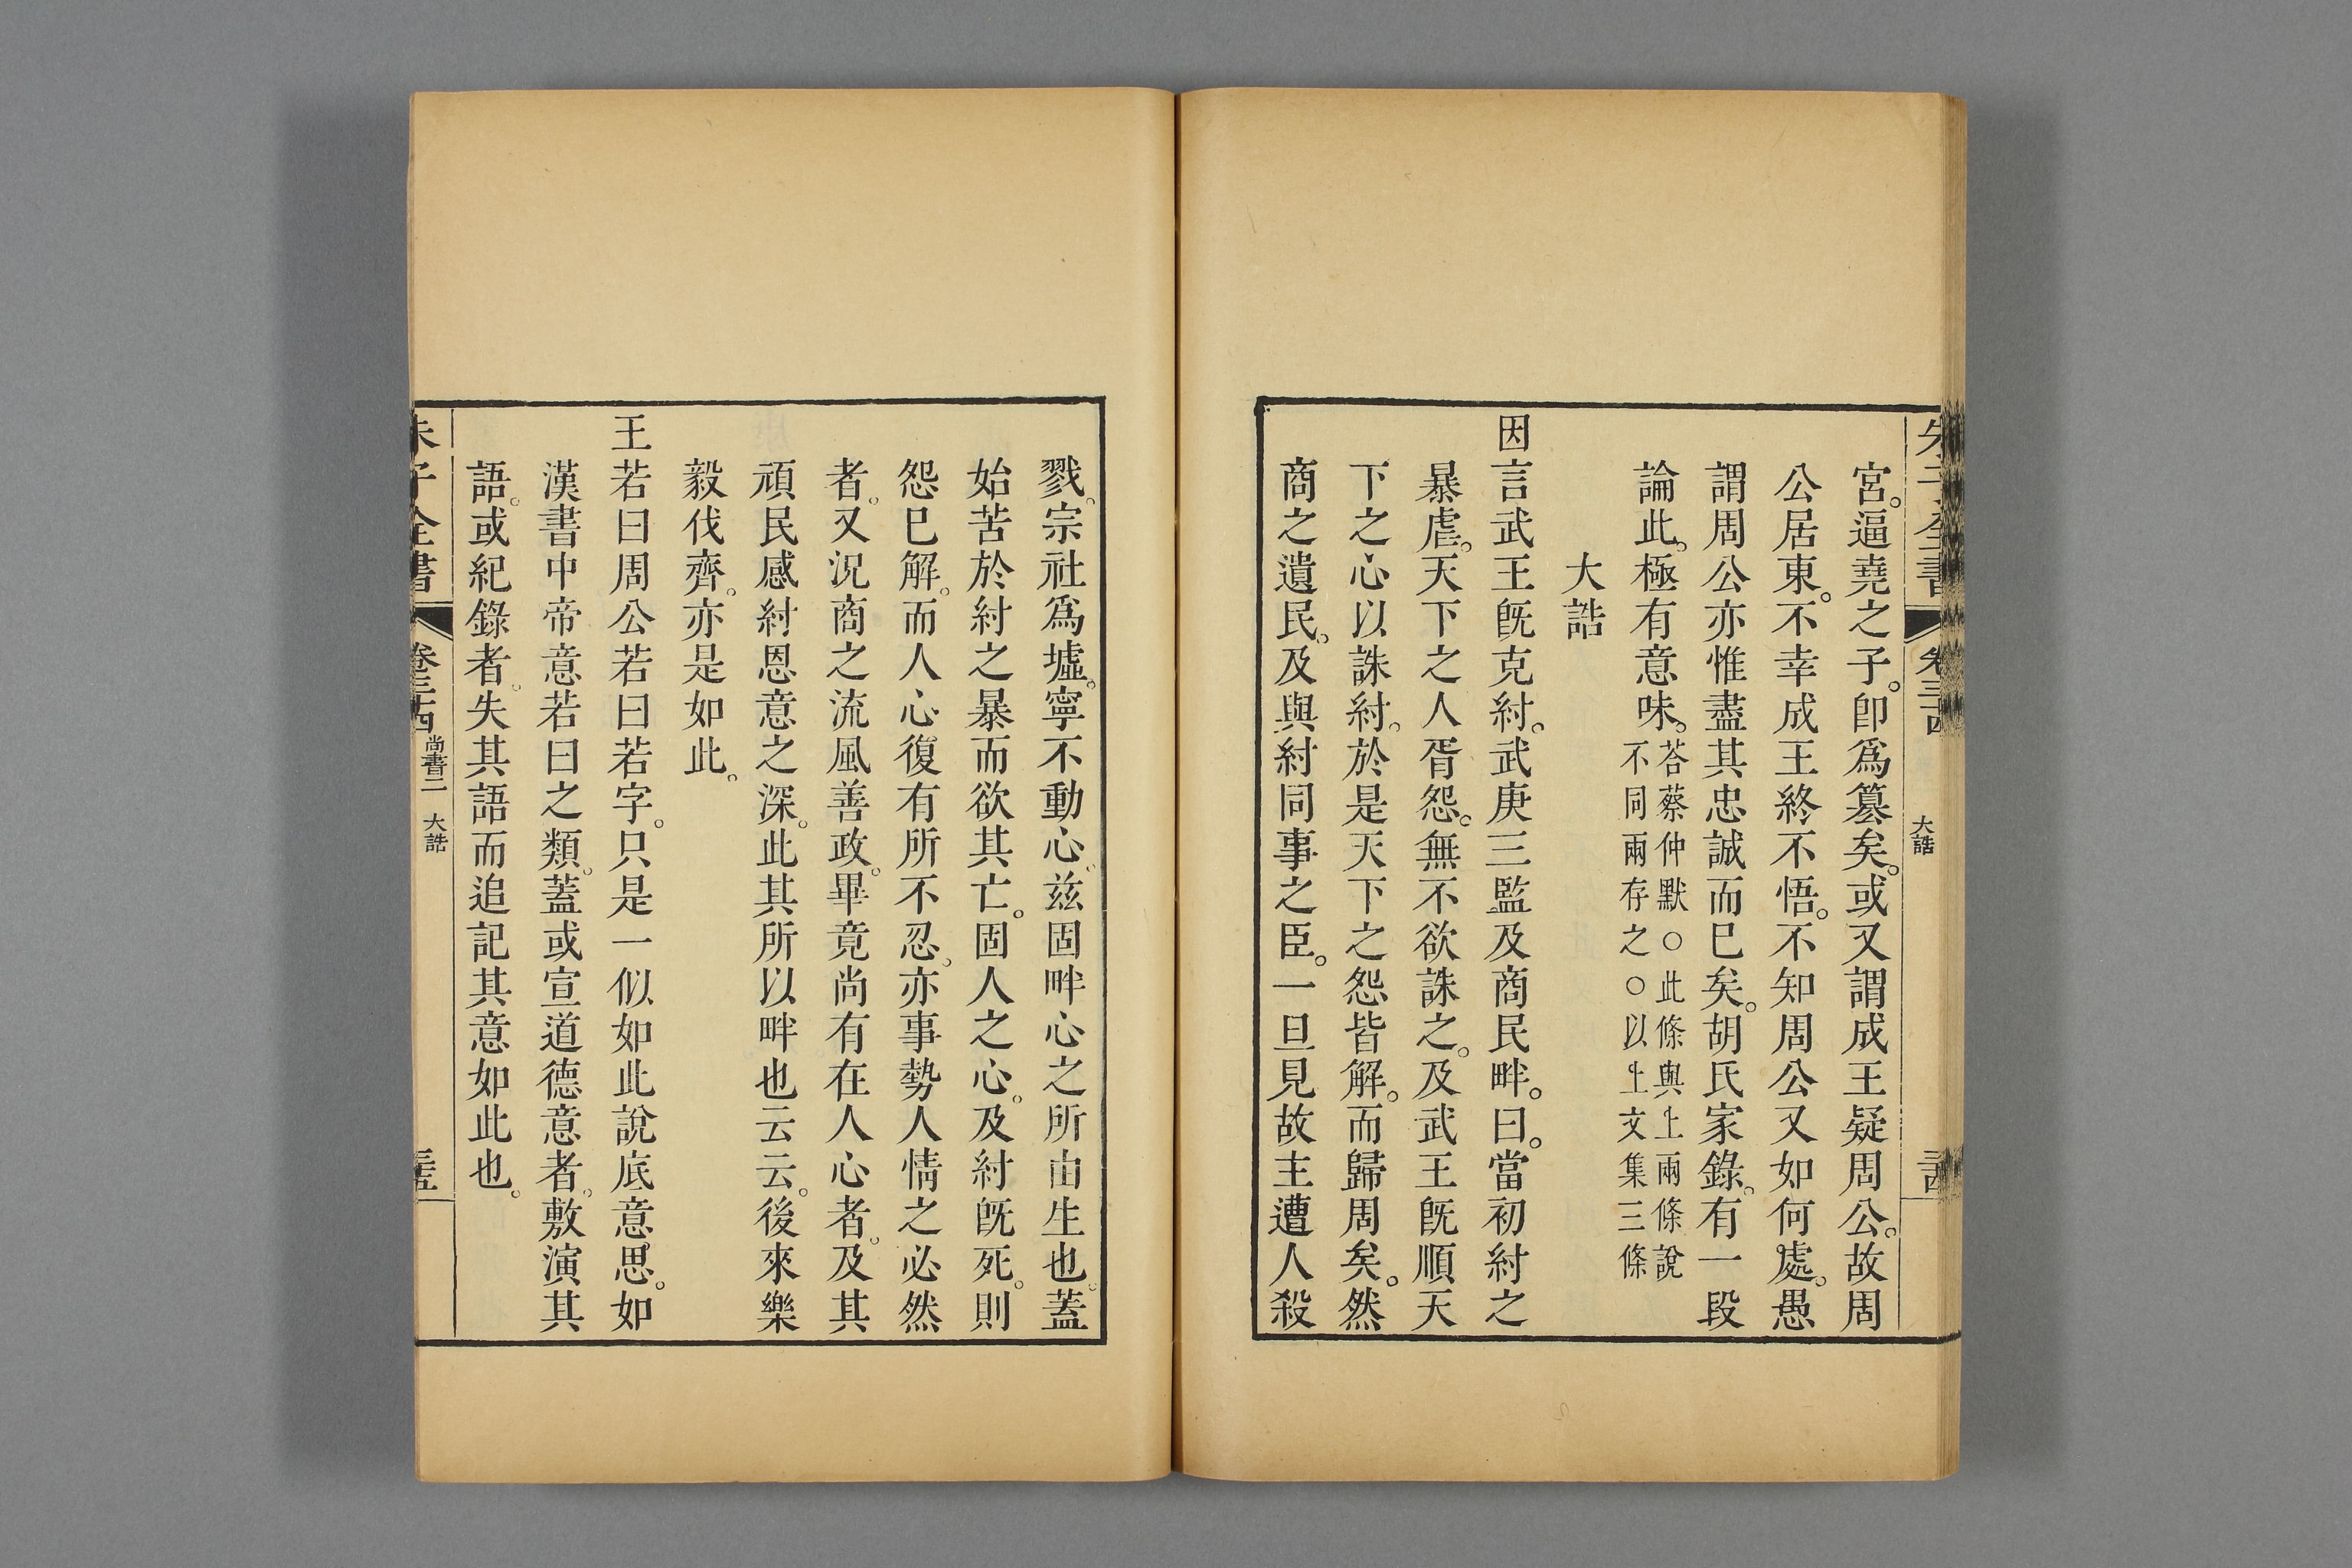 朱子全書 卷三十四 大誥 三十四
宮。逼堯之子。卽爲簒矣。或又謂成王疑周公。故周
公居東。不幸成王終不悟。不知周公又如何處。愚
謂周公亦惟盡其忠誠而已矣。胡氏家錄。有一段
論此。極有意味。荅蔡仲默○此條與上兩條說
不同兩存之○以上文集三條
大誥
因言武王旣克紂。武庚三監及商民畔。曰。當初紂之
暴虐。天下之人胥怨。無不欲誅之。及武王旣順天
下之心以誅紂。於是天下之怨皆解。而歸周矣。然
商之遺民。及與紂同事之臣。一旦見故主遭人殺
戮。宗社爲墟。寧不動心。茲固畔心之所由生也。蓋
始苦於紂之暴而欲其亡。固人之心。及紂旣死。則
怨已解。而人心復有所不忍。亦事勢人情之必然
者。又況商之流風善政。畢竟尚有在人心者。及其
頑民感紂恩意之深。此其所以畔也云云。後來樂
毅伐齊。亦是如此。
王若曰周公若曰若字。只是一似如此說底意思。如
漢書中帝意若曰之類。蓋或宣道德意者。敷演其
語。或紀錄者。失其語而追記其意如此也。
朱子全書 卷三十四 尚書二 大誥 三十五